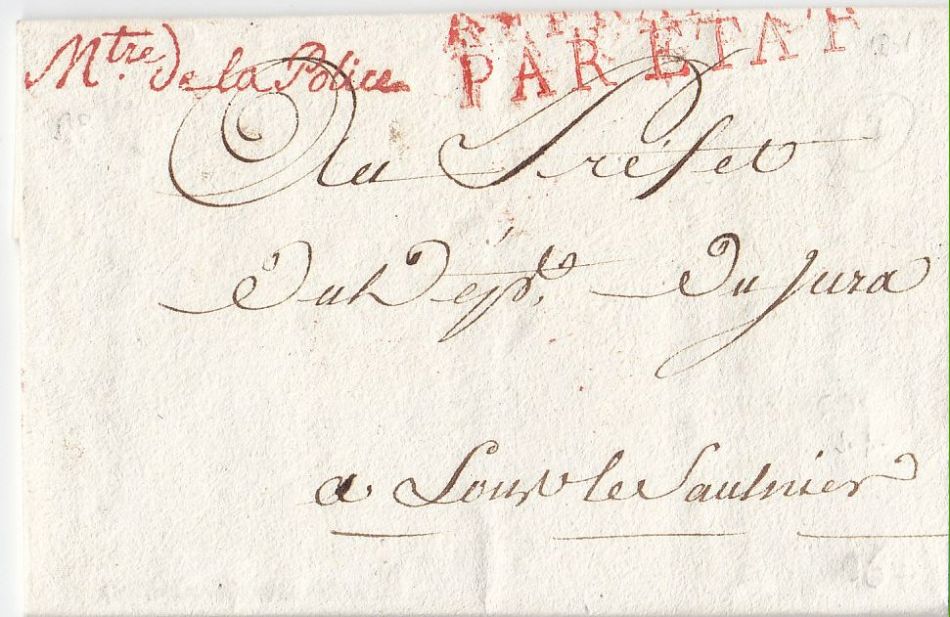 Mtre de la Police
PAR ETAT
Au Préfet
Du Dépt. Du Jura
a Lons le Saulnier